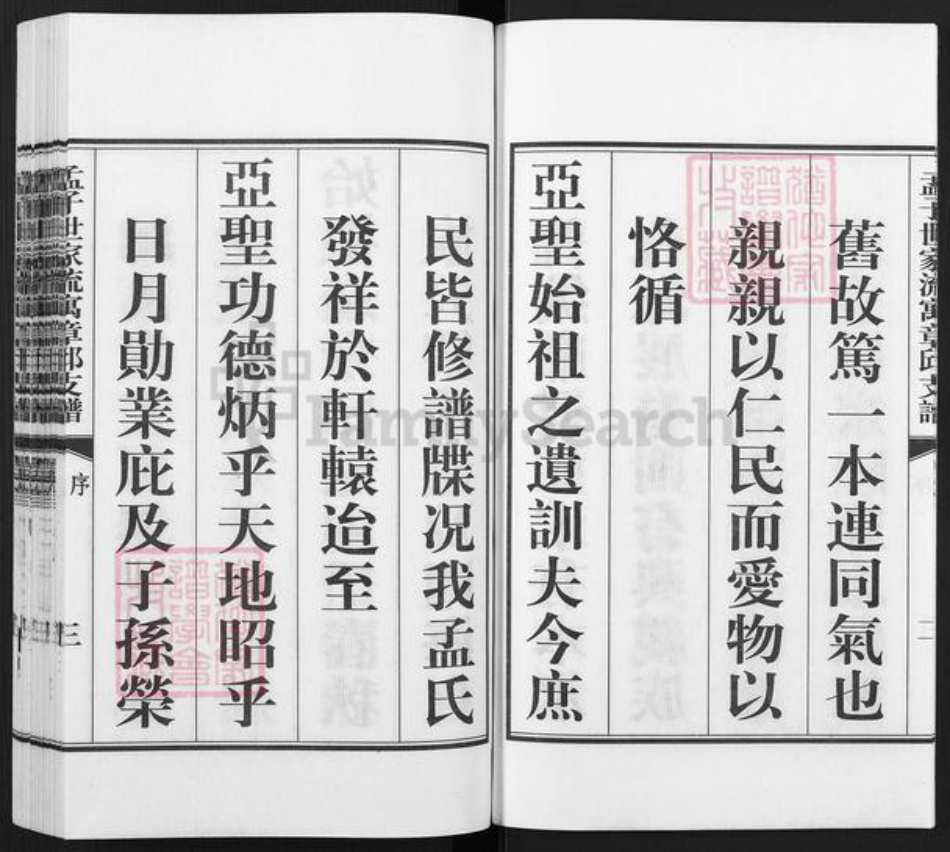 舊故篤一本連同氣也
親親以仁民而愛物以
恪循
亞聖始祖之遺訓夫今庶
民皆修譜牒况我孟氏
發祥於軒轅迨至
亞聖功德炳乎天地昭乎
日月勛業庇及子孫榮
孟子世家流寓章邱支譜
序
三
孟子世家流寓章邱支譜
二
FamilySearch